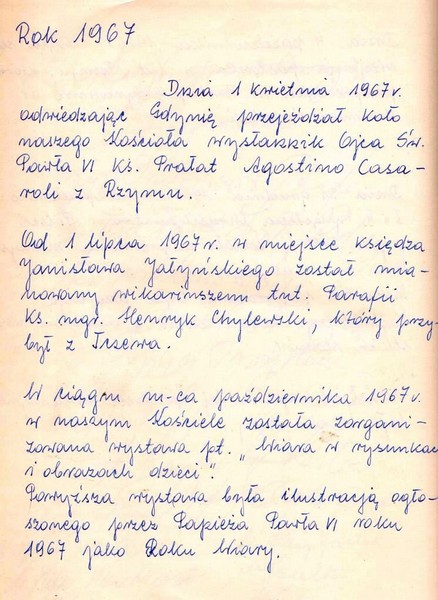 Rok 1967
Dnia 1 kwietnia 1967 r.
odwiedzając Gdynię przejeżdżał koło
naszego Kościoła wysłannik Ojca Św.
Pawła VI Ks. Prałat Agostino Casa-
roli z Rzymu.
Od 1 lipca 1967 r. w miejsce księdza
Janisława Jałyńskiego został mia-
nowany wikariuszem tut. Parafii
Ks. mgr. Henryk Chylewski, który przy-
był z Tczewa.
W ciągu m-ca października 1967 r.
w naszym Kościele została zorgani-
zowana wystawa pt. „Wiara w rysunkach
i obrazach dzieci".
Powyższa wystawa była ilustracją ogło-
szonego przez Papieża Pawła VI roku
1967 jako Roku Wiary.